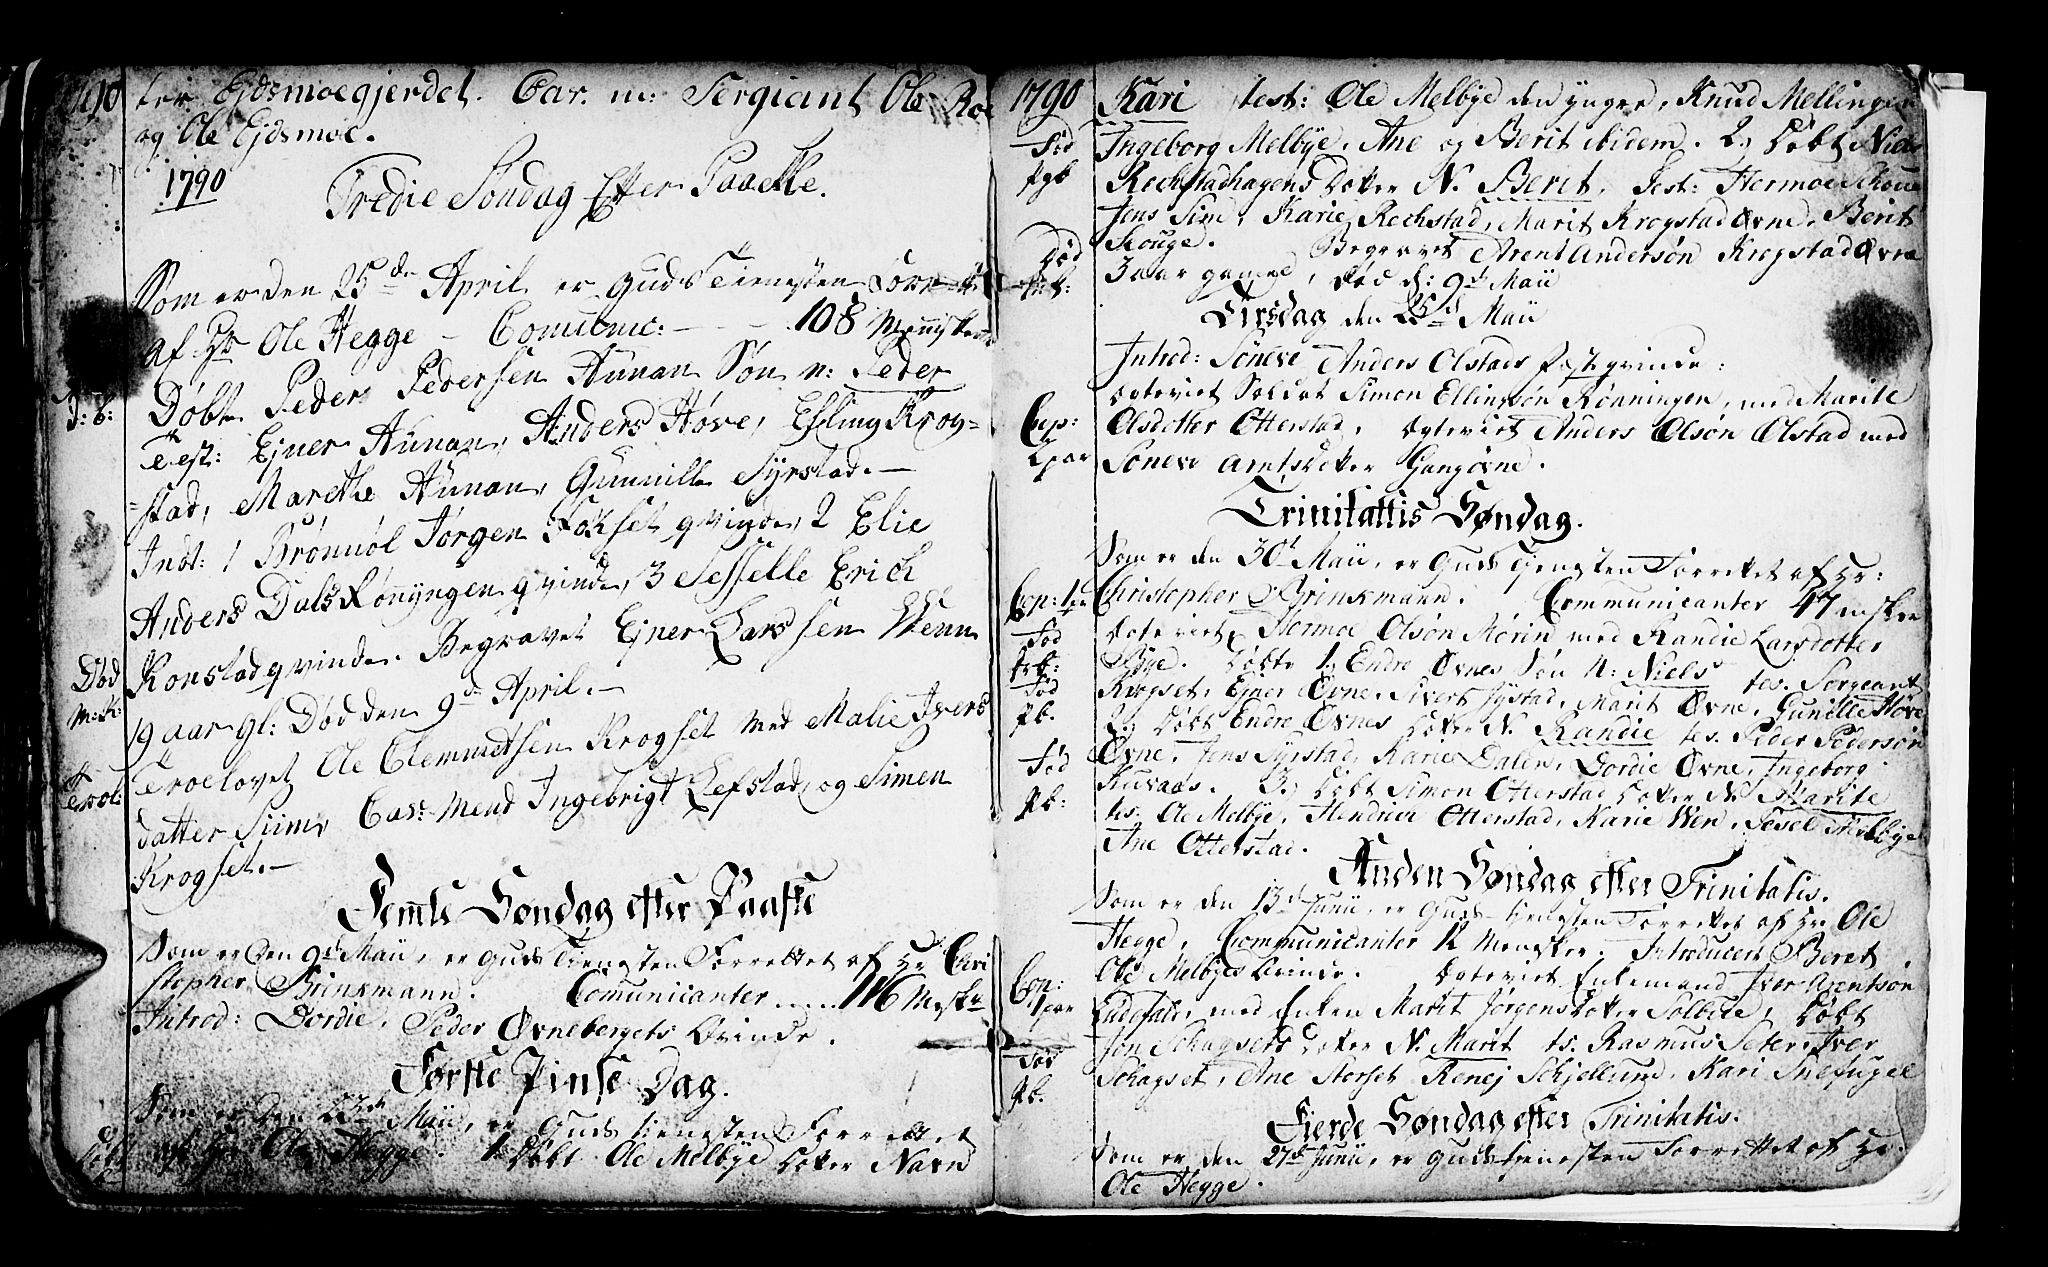 1790
ter Ejdsmoegjerdet. Cav. m: Sergiant Ole Roe
og Ole Ejdsmoe.
1790
Tredie Søndag Efter Paaske.
Som er den 25de April er Guds Tienesten Forrett
af Hr Ole Hegge - Comunic: - - - 108 Mennisker
Døbt Peder Pedersen Aunan Søn n: Peder
d: b:
Test: Ejner Aunan, Anders Høve, Esling Krog-
stad, Marethe Aunan, Gunnille Syrstad. -
Indt: 1 Brønnøl Jørgen Fokset qvinde, 2 Elie
Anders Dals Rønyngen qvinde, 3 Sesselle Erich
Konstad qvinde. Begravet Ejner Larssen Wenn
Død
M:K:
19 aar gl: Død den 9de April. -
Troelovet Ole Clemmetsen Krogset med Malie Ivers
Trol:
datter Siim, Cav: Mend Ingebrigt Lefstad, og Simen
Krogset. -
Femte Søndag efter Paaske
Som er den 9de Maii, er Guds Tienesten Forrettet af Hr Chri
stopher Brinkmann. Comunicanter ..... 116 Mskr
Introd: Dordie, Peder Øvnebergets Qvinde.
Første Pinse Dag.
Som er den 23de Maii, er Guds tienesten Forrettet
af Hr Ole Hegge. 1 Døbt Ole Melbye Doter Navn
1790
Kari test: Ole Melbye den ynger, Knud Mellingen
Fød
Ingeborg Melbye, Ane og Berit ibidem. 2, Døbt Niels
Pgb
Rechstadhagens Doter N. Berit, Test: Hermoe Skouge
Jens Sim, Karie Rechstad, Marit Krogstad Øvne, Berit
Skouge. Begravet Arent Andersøn Krogstad Øvne
Død
3 aar gamel, død d: 9de Maii
Tirsdag den 25de Maii
Introd: Sønevе Anders Olstads Fæsteqvinde:
Egteviet Soldat Simon Ellingsøn Rønningen, med Marite
Cop:
Olsdotter Otterstad, Egteviet Anders Olsøn Olstad med
2par
Søneve Arntsdoter Gangøvne.
Trinitattis Søndag.
Som er den 30te Maii, er Guds Tjenesten Forrettet af Hr:
Cop: 1par
Christopher Brinkmann. Communicanter 47 mskr
Egteviet Hermoe Olsøn Mørin med Randie Larsdotter
Fød
Rye. Døbte 1, Endre Øvnes Søn N: Niels tes. Sergeant
Fød
Krogset, Ejner Øvne, Sivert Syrstad, Marit Øvne, Gunille Høve
Pb.
2, Døbt Endre Øvnes Doter N. Randie tes. Peder Pedersøn
Øvne, Jens Syrstad, Karie Dalen, Dordie Øvne, Ingeborg
Fød
Kuvaas. 3, Døbt Simon Otterstad Doter N. Marite
Pb:
tes. Ole Melbye, Hendrich Otterstad, Karie Wen, Sesel Melbye
Ane Otterstad.
Anden Søndag efter Trinitatis.
Som er den 13de Junii, er Guds-tienesten Forrettet af Hr: Ole
Hegge, Communicanter 12 Mennsker. Introducert Beret
Ole Melbyes Qvinde. Egteviet Enkemand Iver Arentsøn
Cop:
1par
med Enken Marit Jørgensdoter Solbere, Døbt
Jon Schagsets Doter N. Marit ts. Rasmus Seter, Iver
Fød
Pb.
Schagset, Ane Storset Renej Schjellund, Kari Snefugel
Fierde Søndag efter Trinitatis.
Som er den 27de Junii, er Guds tienesten Forrettet af Hr:
Ole Hegge.